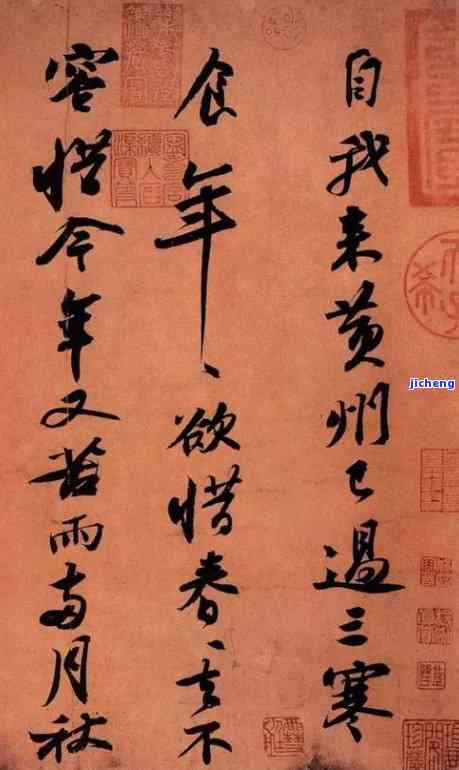 自我来黄州已過三寒
食年〻欲惜春〻去不
容惜今年又苦雨兩月秋
jicheng